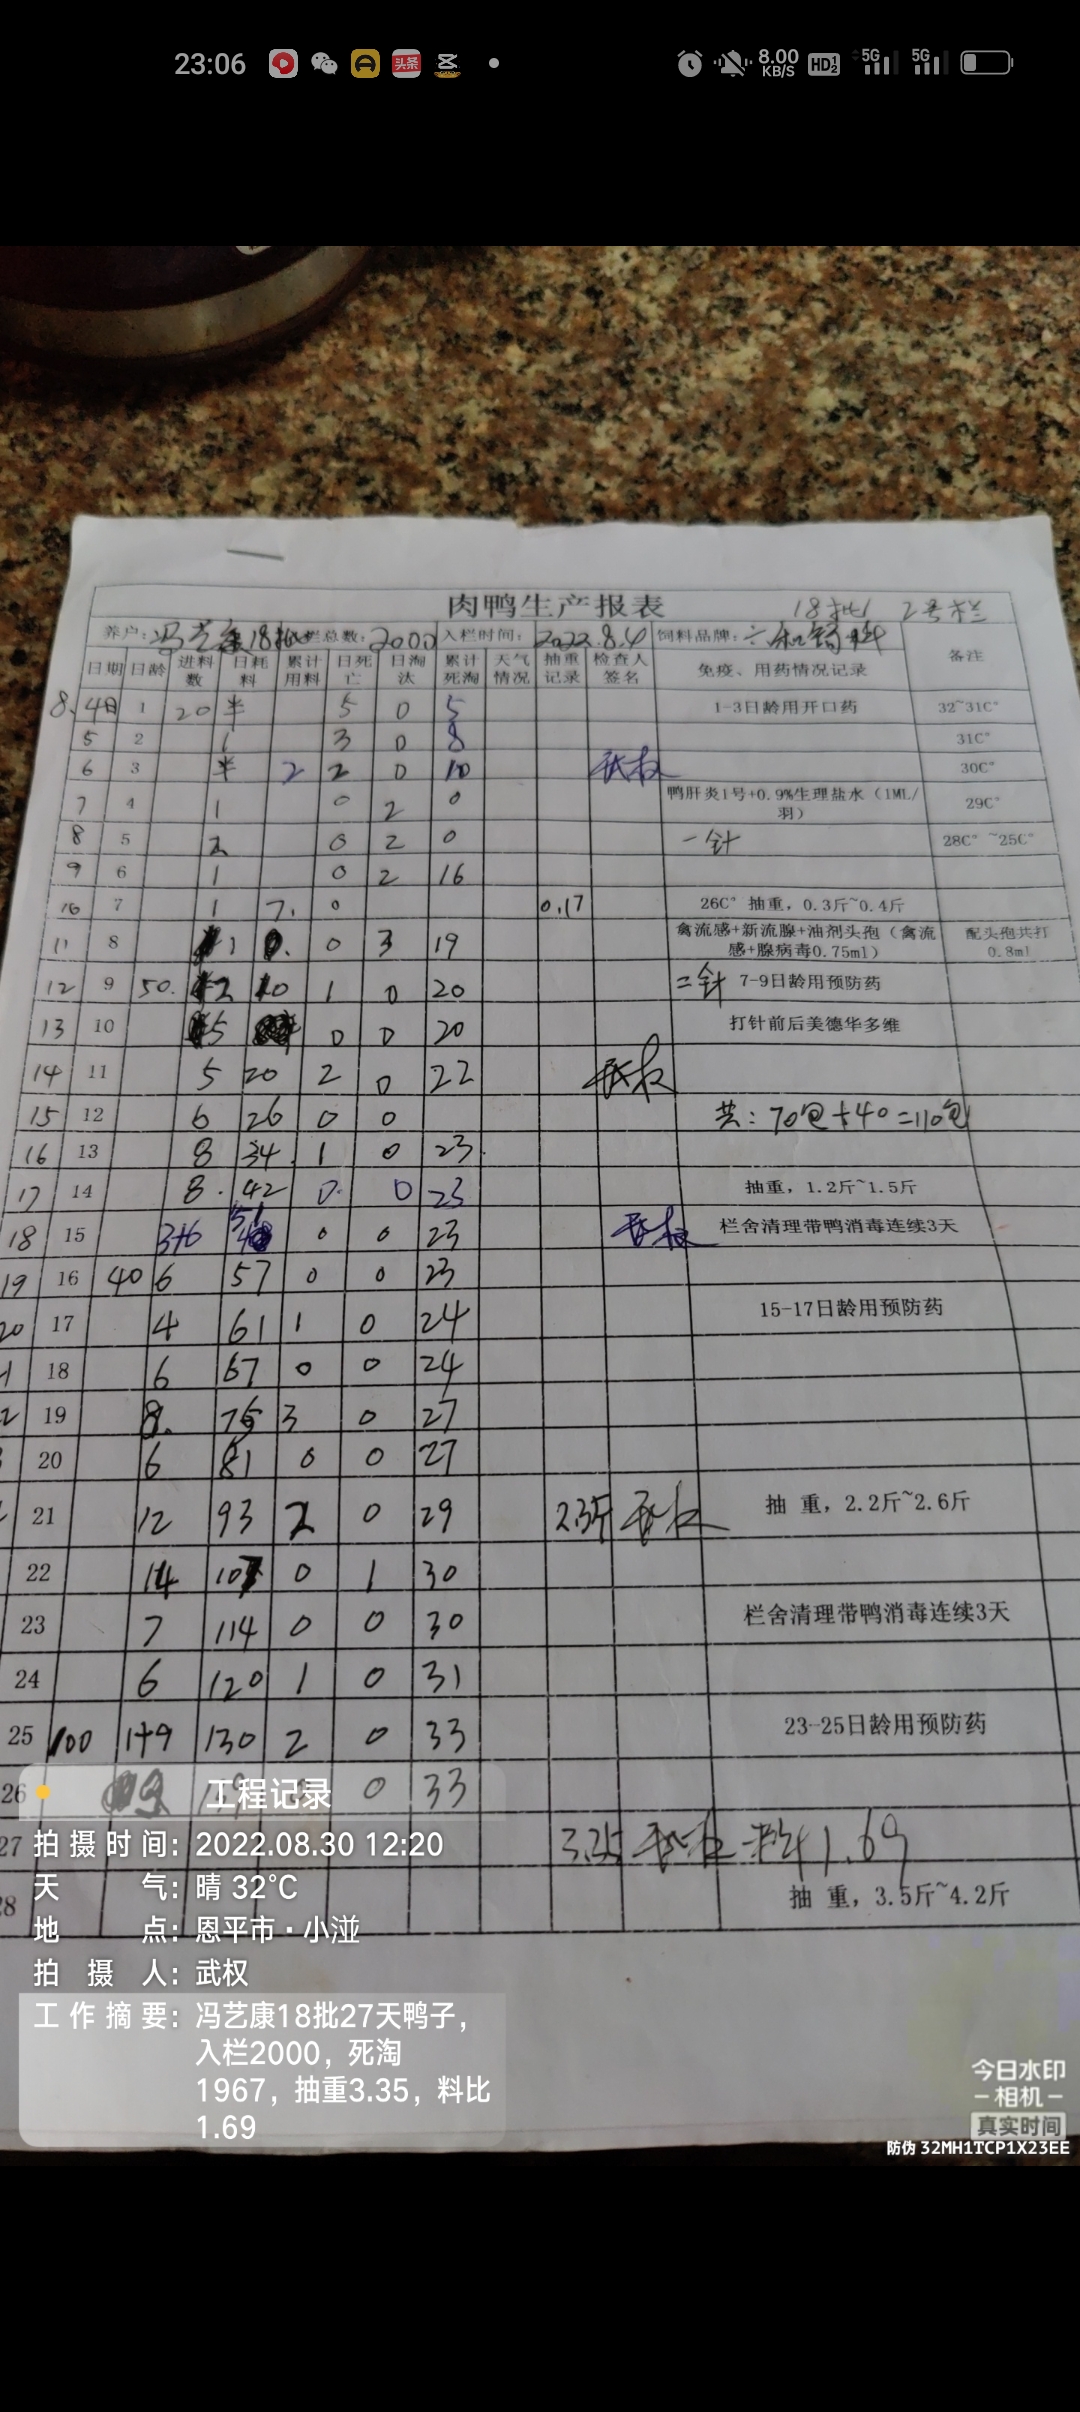 23:06 头条 8.00 KB/S HD 5G 5G
肉鸭生产报表 18批 2号栏
养户: 冯艺康18批 入栏总数: 2000 入栏时间: 2022.8.4 饲料品牌: 六和饲料 备注
日期 日龄 进料数 日耗料 累计用料 日死亡 日淘汰 累计死淘 天气情况 抽重记录 检查人签名 免疫、用药情况记录
8.4日 1 20 半 5 0 5 1-3日龄用开口药 32~31C°
5 2 1 3 0 8 31C°
6 3 半 2 2 0 10 武权 30C°
7 4 1 0 2 0 鸭肝炎1号+0.9%生理盐水（1ML/羽） 29C°
8 5 2 0 2 0 一针 28C° ~25C°
9 6 1 0 2 16
10 7 1 7. 0 0.17 26C° 抽重，0.3斤~0.4斤
11 8 1 0 3 19 禽流感+新流腺+油剂头孢（禽流感+腺病毒0.75ml） 配头孢共打0.8ml
12 9 50. 2 10 1 0 20 二针 7-9日龄用预防药
13 10 5 0 0 20 打针前后美德华多维
14 11 5 20 2 0 22 武权
15 12 6 26 0 0 共: 70包+40=110包
16 13 8 34. 1 0 23.
17 14 8. 42 0. 0 23 抽重，1.2斤~1.5斤
18 15 3+6 51 0 0 23 武权 栏舍清理带鸭消毒连续3天
19 16 40 6 57 0 0 23
20 17 4 61 1 0 24 15-17日龄用预防药
18 6 67 0 0 24
19 8. 75 3 0 27
20 6 81 0 0 27
21 12 93 2 0 29 2.3斤 武权 抽 重，2.2斤~2.6斤
22 14 107 0 1 30
23 7 114 0 0 30 栏舍清理带鸭消毒连续3天
24 6 120 1 0 31
25 100 1+9 130 2 0 33 23-25日龄用预防药
26 9 0 33
27 3.35 武权 料比1.69
28 抽 重，3.5斤~4.2斤
工程记录
拍摄时间: 2022.08.30 12:20
天 气: 晴 32℃
地 点: 恩平市·小湴
拍 摄 人: 武权
工作摘要: 冯艺康18批27天鸭子，
入栏2000，死淘
1967，抽重3.35，料比
1.69
今日水印
相机
真实时间
防伪 32MH1TCP1X23EE